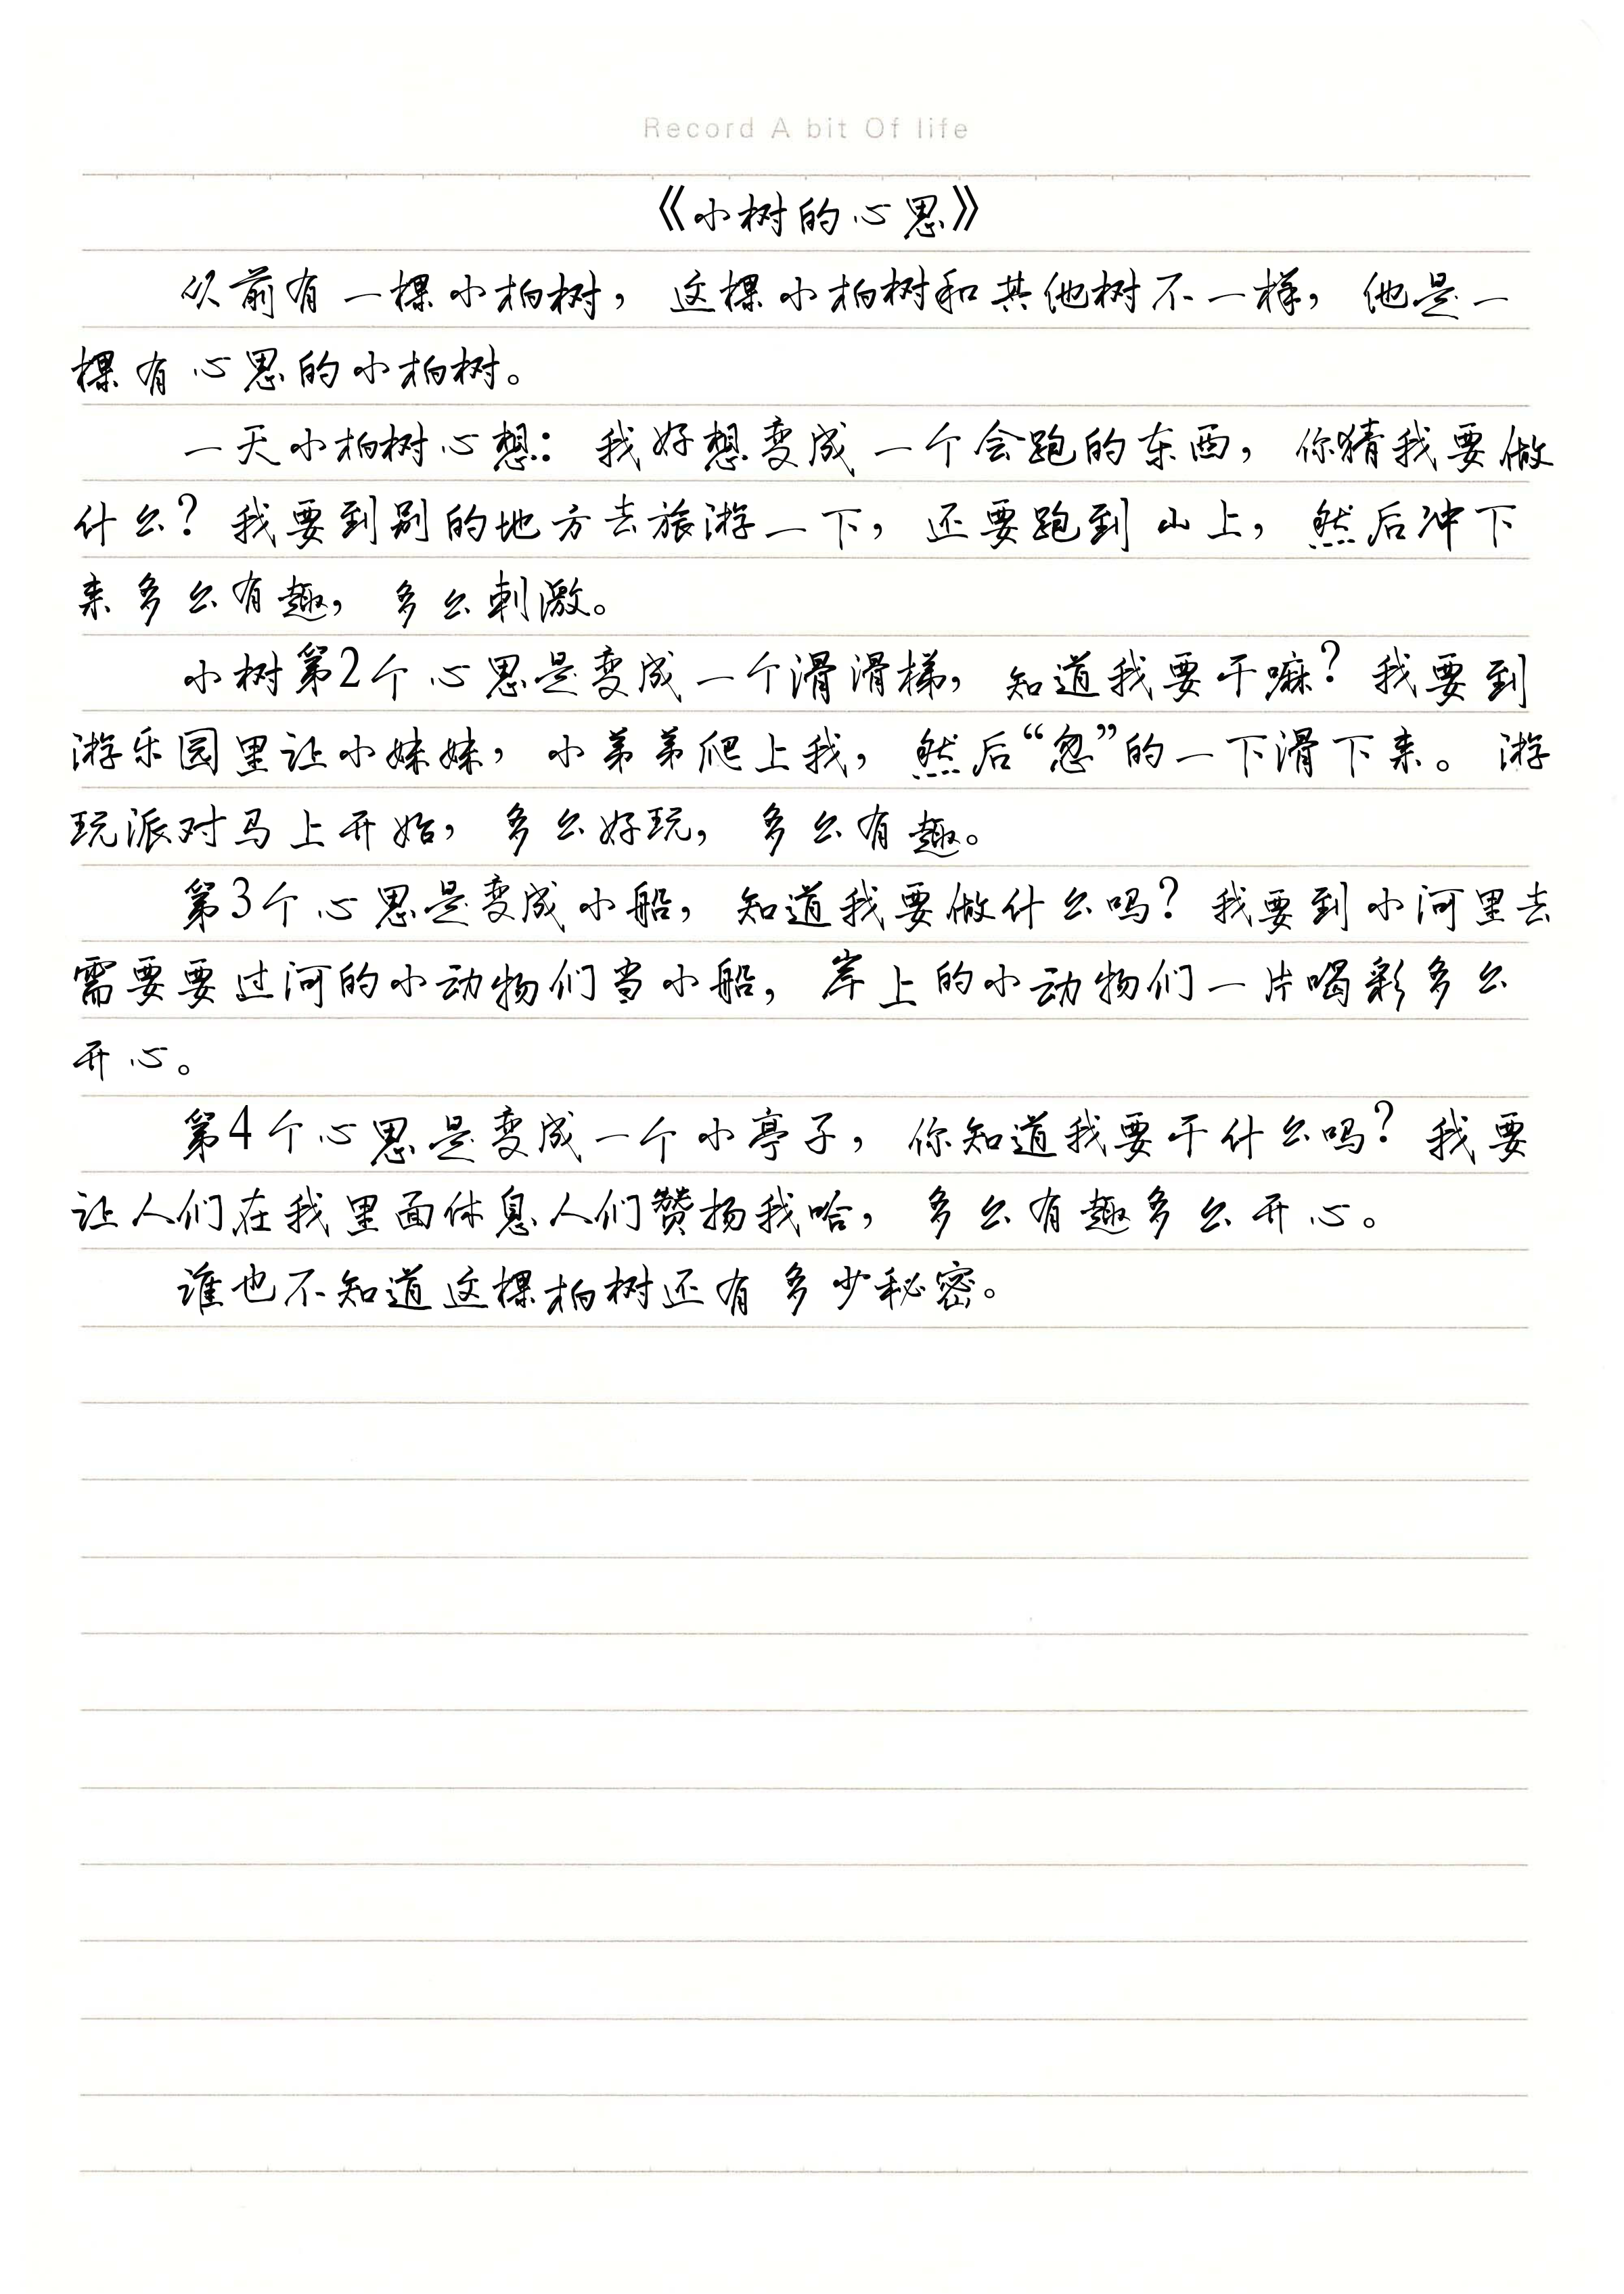 Record A bit Of life
《小树的心思》
从前有一棵小柏树，这棵小柏树和其他树不一样，他是一
棵有心思的小柏树。
一天小柏树心想：我好想变成一个会跑的东西，你猜我要做
什么？我要到别的地方去旅游一下，还要跑到山上，然后冲下
来多么有趣，多么刺激。
小树第2个心思是变成一个滑滑梯，知道我要干嘛？我要到
游乐园里让小妹妹，小弟弟爬上我，然后“忽”的一下滑下来。游
玩派对马上开始，多么好玩，多么有趣。
第3个心思是变成小船，知道我要做什么吗？我要到小河里去
需要要过河的小动物们当小船，岸上的小动物们一片喝彩多么
开心。
第4个心思是变成一个小亭子，你知道我要干什么吗？我要
让人们在我里面休息人们赞扬我哈，多么有趣多么开心。
谁也不知道这棵柏树还有多少秘密。